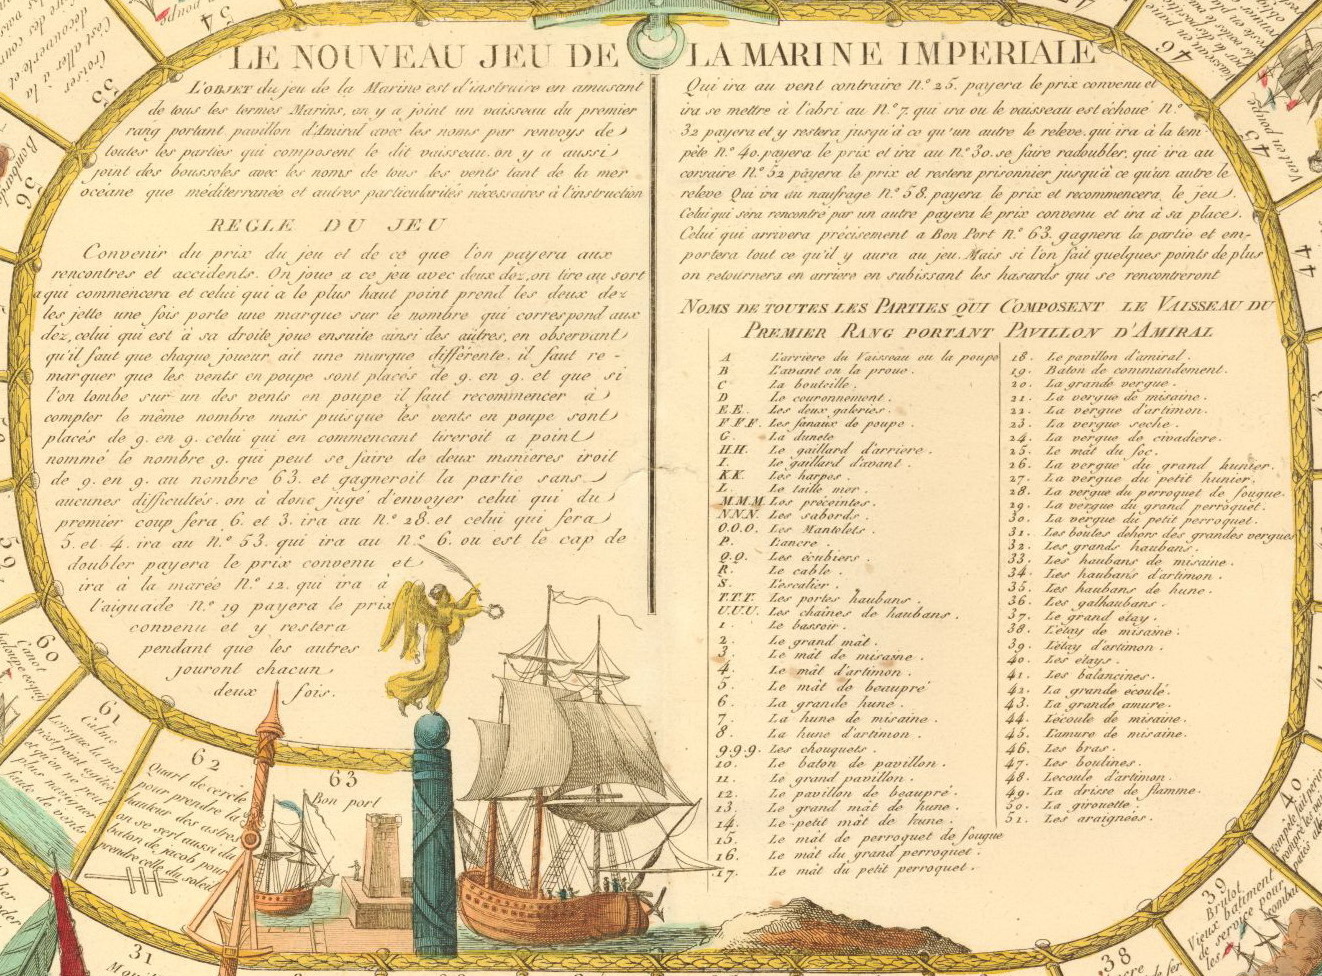 LE NOUVEAU JEU DE LA MARINE IMPERIALE
L'OBJET du jeu de la Marine est d'instruire en amusant
de tous les termes Marins, on y a joint un vaisseau du premier
rang portant pavillon d'Amiral avec les noms par renvoys de
toutes les parties qui composent le dit vaisseau. on y a aussi
joint des boussoles avec les noms de tous les vents tant de la mer
océane que méditerranée et autres particularités nécessaires à l'instruction
REGLE DU JEU
Convenir du prix du jeu et de ce que l'on payera aux
rencontres et accidents. On joue a ce jeu avec deux dez, on tire au sort
a qui commencera et celui qui a le plus haut point prend les deux dez
les jette une fois porte une marque sur le nombre qui correspond aux
dez, celui qui est à sa droite joue ensuite ainsi des autres, en observant
qu'il faut que chaque joueur ait une marque différente. il faut re-
marquer que les vents en poupe sont placés de 9. en 9. et que si
l'on tombe sur un des vents en poupe il faut recommencer à
compter le même nombre mais puisque les vents en poupe sont
placés de 9. en 9. celui qui en commencant tireroit a point
nommé le nombre 9. qui peut se faire de deux manieres iroit
de 9. en 9. au nombre 63. et gagneroit la partie sans
aucunes difficultés. on à donc jugé d'envoyer celui qui du
premier coup fera 6. et 3. ira au N.° 28. et celui qui fera
5. et 4. ira au N.° 53. qui ira au n.° 6. ou est le cap de
doubler payera le prix convenu et
ira à la marée N.° 12. qui ira à
l'aiguade N.° 19 payera le prix
convenu et y restera
pendant que les autres
jouront chacun
deux fois.
Qui ira au vent contraire N.° 25. payera le prix convenu et
ira se mettre à l'abri au N.° 7. qui ira ou le vaisseau est échoué N.°
32 payera et y restera jusqu'à ce qu'un autre le releve. qui ira à la tem-
pête N.° 40. payera le prix et ira au N.° 30. se faire radoubler, qui ira au
corsaire N.° 52 payera le prix et restera prisonnier jusqu'à ce qu'un autre le
releve Qui ira au naufrage N.° 58. payera le prix et recommencera le jeu.
Celui qui sera rencontré par un autre payera le prix convenu et ira à sa place.
Celui qui arrivera précisement a Bon Port N.° 63. gagnera la partie et em-
portera tout ce qu'il y aura au jeu. Mais si l'on fait quelques points de plus
on retournera en arriere en subissant les hasards qui se rencontreront
NOMS DE TOUTES LES PARTIES QUI COMPOSENT LE VAISSEAU DU
PREMIER RANG PORTANT PAVILLON D'AMIRAL
A L'arriere du Vaisseau ou la poupe
B L'avant ou la proue.
C La bouteille.
D Le couronnement.
E.E. Les deux galeries.
F.F.F. Les fanaux de poupe.
G. La dunete
H.H. Le gaillard d'arriere.
I. Le gaillard d'avant.
K.K. Les harpes.
L. Le taille mer.
M.M.M. Les préceintes.
N.N.N. Les sabords.
O.O.O. Les Mantolets.
P. L'ancre.
Q.Q. Les écubiers.
R. Le cable.
S. L'escalier.
T.T.T. Les portes haubans.
U.U.U. Les chaines de haubans.
1. Le bassoir.
2. Le grand mât.
3. Le mât de misaine.
4. Le mât d'artimon.
5. Le mât de beaupré
6. La grande hune.
7. La hune de misaine.
8. La hune d'artimon.
9.9.9. Les chouquets.
10. Le baton de pavillon.
11. Le grand pavillon.
12. Le pavillon de beaupré.
13. Le grand mât de hune.
14. Le petit mât de hune.
15. Le mât de perroquet de fougue
16. Le mât du grand perroquet.
17. Le mât du petit perroquet.
18. Le pavillon d'amiral.
19. Baton de commandement.
20. La grande vergue.
21. La vergue de misaine.
22. La vergue d'artimon.
23. La vergue seche.
24. La vergue de civadiere.
25. Le mât du foc.
26. La vergue du grand hunier.
27. La vergue du petit hunier.
28. La vergue du perroquet de fougue.
29. La vergue du grand perroquet.
30. La vergue du petit perroquet.
31. Les boutes dehors des grandes vergues
32. Les grands haubans.
33. Les haubans de misaine.
34. Les haubans d'artimon.
35. Les haubans de hune.
36. Les galhaubans.
37. Le grand étay.
38. L'étay de misaine.
39. L'étay d'artimon.
40. Les étays.
41. Les balancines.
42. La grande écoulé.
43. La grande amure.
44. L'écoule de misaine.
45. L'amure de misaine.
46. Les bras.
47. Les boulines.
48. L'ecoule d'artimon.
49. La drisse de flamme.
50. La girouette.
51. Les araignées.
54
55
Croiser
C'est aller à la
découverte et
56
59
60
Canot
61
Calme
Lorsque la mer
n'est point agitée
et qu'on ne peut
plus naviguer
faute de vents
62
Quart de cercle
pour prendre la
hauteur des astres
on se sert aussi du
baton de jacob pour
prendre celle du soleil
63
Bon port
31
38
39
Brulot
Vieux batiment
de service pour
40
44
45
Vent en poupe
46